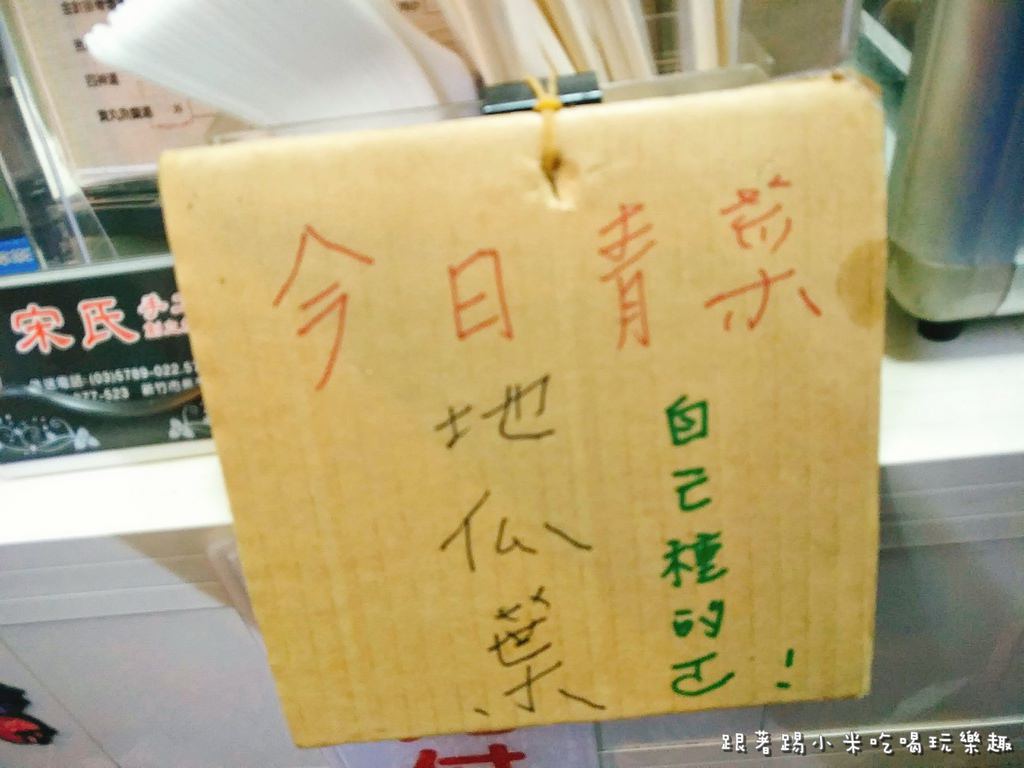 四神湯
今日青菜
地瓜葉
自己種的ㄛ!
宋氏
電話:(03)5789-022.57
77-523 新竹市
跟著踢小米吃喝玩樂趣